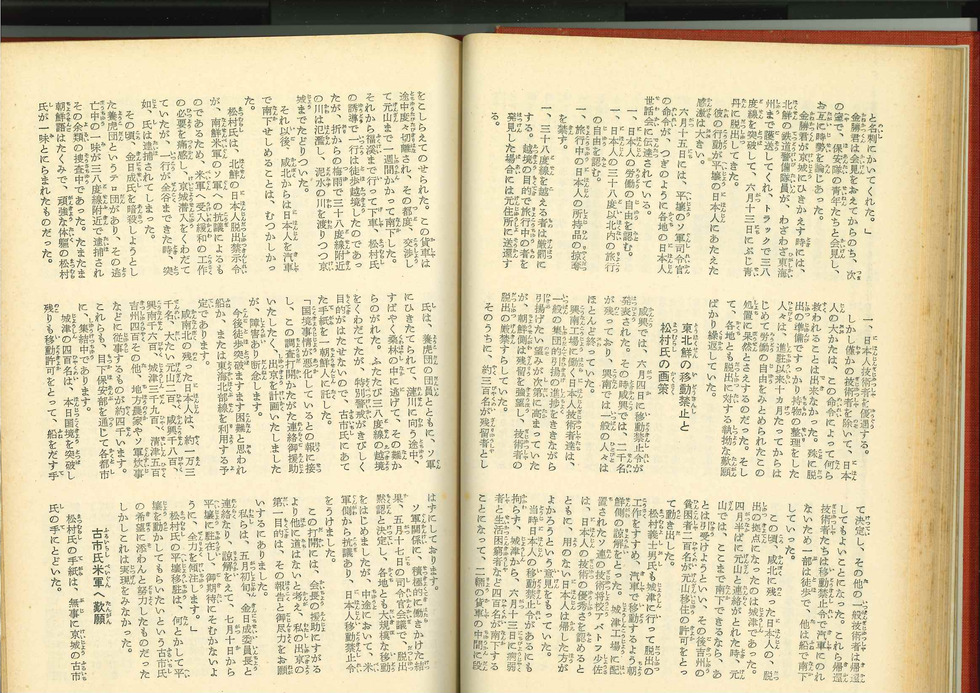 と名刺にかいてくれた。」
金勝君は会見をおえてからのち、次
の室で、保安隊の青年たちと会見し、
お互に時勢を論じあった。
金勝君が京城にひきかえす時には、
北鮮の鉄道警備隊員が、わざわざ東海
州まで護送してくれ、トラックで三八
度線を突破して、六月十三日にぶじ青
丹に脱出してきた。
彼の行動が平壌の日本人にあたえた
感激は大きい。
六月十五日には、平壌のソ軍司令官
の命令が、つぎのように各地の日本人
世話会に伝達されている。
一、日本人の労働の自由を認む。
一、日本人の三十八度以北内の旅行
の自由を認む。
一、旅行中の日本人の所持品の掠奪
を禁ず。
一、三十八度線を越える者は厳罰に
する。越境の目的で旅行中の者を
発見した場合には元住所に送還す
る。
一、日本人技術者を優遇する。
しかし僅かの技術者を除いて、日本
人の大かたは、この命令によって何ら
救われることは出来なかった。殊に脱
出の準備ですっかり持物の整理をした
人々は、進駐以来十カ月たってからは
じめて労働の自由をみとめられたこの
処置に呆然とさえするのだった。そし
て、各地とも脱出に対する執拗な歎願
ばかり続出していた。
東北鮮の移動禁止と
松村氏の画策
咸興では、六月四日に移動禁止令が
発表された。その時咸興では、二千名
が残っており、興南では一般の人々は
ほとんど終っていた。
興南工場に残った日本人技術者達は、
一般の集団的引揚の進歩をききながら
引揚げたい望みが次第に高まっていた
が、朝鮮は残留を強要し、技術者の
脱出の厳禁すらしていた。
そのうちに、約三百名が残留者とし
て決定し、その他の一般技術者は帰還
してもよいことになった。これら帰還
技術者たちは移動禁止令で汽車にのれ
ないため一部は徒歩で、他は船で南下
していった。
この頃、咸北に残った日本人の、脱
出の焦点になったのは城津であった。
四月半ばに元山と連絡がとれた時、元
山では、ここまで南下できるなら、あ
とは引受けようといい、その後吉州の
貧困者二百名が元山移住の許可をとっ
て動き出した。
松村義士男氏も城津に行って脱出の
工作をすすめ、汽車で移動するよう朝
鮮側の諒解をとった。城津工場に配
置されたソ連の技術将校アイトフ少佐
は、日本人の技術の優秀さを認めると
ともに、用のない日本人は帰した方が
よかろうという意見をもっていた。
当時日本人の移動禁止令があるにも
拘らず、城津から、六月十三日に病弱
者と生活困窮者など四百名が南下する
ことになって、二輛の貨車の中間に段
をこしらえてのせられた。この貨車は
途中度々切離され、その都度、交渉し
て元山まで一週間かかって南下した。
それから福渓まで行って下車、松村氏
の誘導で一行は徒歩越境したのであっ
たが、折からの梅雨で三十八度線附近
の川は氾濫し、泥水の川を渡りつつ京
城までたどりついた。
それ以後、咸北からは日本人を汽車
で南下せしめることは、むつかしかっ
た。
松村氏は、北鮮の日本人脱出禁示令
が、南鮮米軍のソ軍への抗議によるも
のであるため、米軍受入緩和の工作
の必要を痛感し、京城潜入をくわだて
ていたが、一行が全谷まできた時、突
如、氏は逮捕されてしまった。
その頃、金日成氏を暗殺しようとし
た養虎団というテロ団があり、その逃
亡中の一味が三八度線附近で逮捕され
その余類の捜査中であった。たまたま
朝鮮語はたくみで、頑強な体軀の松村
氏が一味とにらまれたものだった。
氏は、養虎団の団員とともに、ソ軍
にひきたてられて、漣川に向う途中、
すばやく桑林の中に逃げて、その難か
らのがれた。ふたたび三八度線の越境
をくわだてたが、特別警戒がきびしく
目的がはたせないので、古市氏にあて
た手紙を一朝鮮人に託した。
「国境事情が悪化しているとの報に接
し、この調査打開かたがた連絡御援助
いたしたく、出京を計画いたしました
が、障害あり断念します。
今後徒歩突破ますます困難と思われ
船か、または東海北部線を利用する予
定であります。
咸南北の残った日本人は、約一万三
千名、大たい元山二千、咸興千八百、
興南千六百、城津二千九百、清津二百
吉州四百その他、地方農家やソ軍炊事
などに従事するものが約四千います。
これらも、目下保安部を通じて各都市
に、集結中であります。
城津の四百名は、本日国境を突破し
残りも移動許可をとって、船をだす手
はずにしております。
ソ軍関係に、積極的に働きかけた結
果、五月十七日の司令官会議で、脱出
黙認と決定し、各地とも大規模な移動
をはじめましたが、途中において、米
軍側から抗議あり、日本人移動禁止令
をうけました。
この打開には、会長の援助にすがる
より他に道はないと考え、私の出京の
第一目的は、その報告と御尽力をお願
いするにありました。
私らは、五月初旬、金日成委員長と
連絡なり、諒解をえて、七月十日から
平壌に駐在し、御期待にそむかないよ
うに、全力を傾注します。」
松村氏の平壌移駐は、何とかして平
壌を動かしてもらいたいという古市氏
の希望に添わんと努力したものだった
しかしこれは実現をみなかった。
古市氏米軍へ歎願
松村氏の手紙は、無事に京城の古市
氏の手にとどいた。